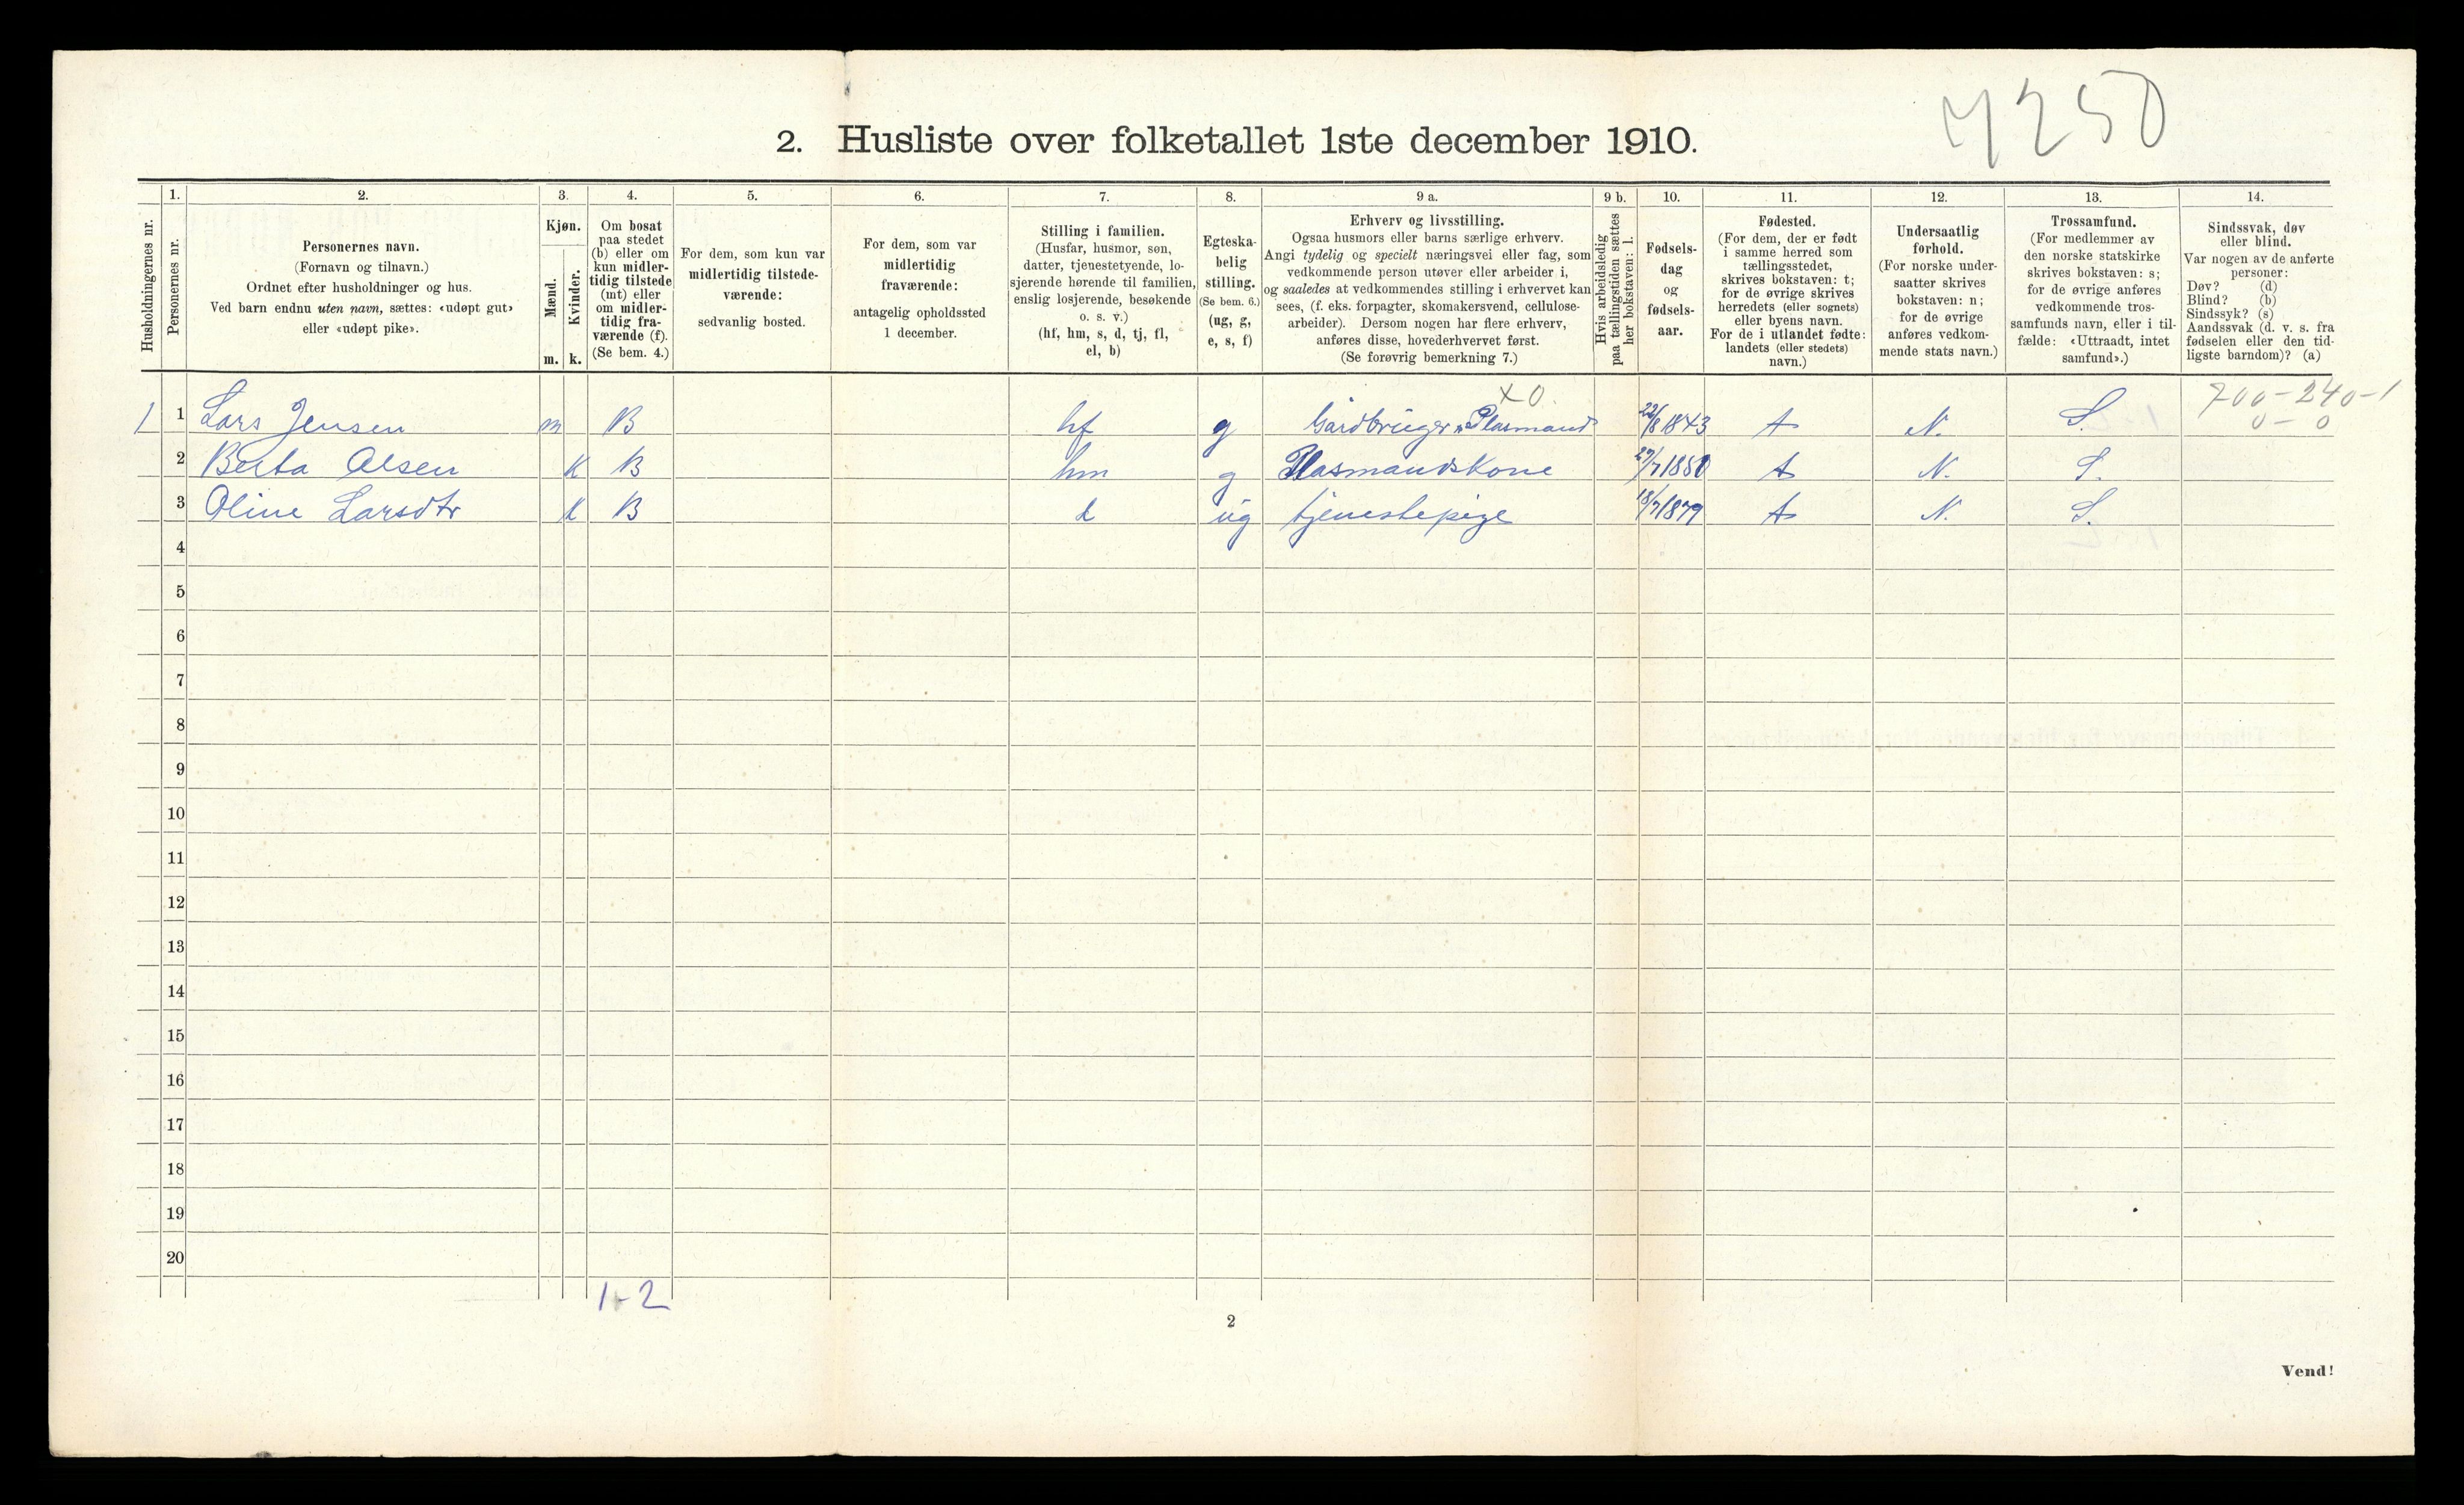 4250
2. Husliste over folketallet 1ste december 1910.
Husholdningernes nr.
1.
Personernes nr.
2.
Personernes navn.
(Fornavn og tilnavn.)
Ordnet efter husholdninger og hus.
Ved barn endnu uten navn, sættes: «udøpt gut»
eller «udøpt pike».
3.
Kjøn.
Mænd.
Kvinder.
m. k.
4.
Om bosat
paa stedet
(b) eller om
kun midler-
tidig tilstede
(mt) eller
om midler-
tidig fra-
værende (f).
(Se bem. 4.)
5.
For dem, som kun var
midlertidig tilstede-
værende:
sedvanlig bosted.
6.
For dem, som var
midlertidig
fraværende:
antagelig opholdssted
1 december.
7.
Stilling i familien.
(Husfar, husmor, søn,
datter, tjenestetyende, lo-
sjerende hørende til familien,
enslig losjerende, besøkende
o. s. v.)
(hf, hm, s, d, tj, fl,
el, b)
8.
Egteska-
belig
stilling.
(Se bem. 6.)
(ug, g,
e, s, f)
9 a.
Erhverv og livsstilling.
Ogsaa husmors eller barns særlige erhverv.
Angi tydelig og specielt næringsvei eller fag, som
vedkommende person utøver eller arbeider i,
og saaledes at vedkommendes stilling i erhvervet kan
sees, (f. eks. forpagter, skomakersvend, cellulose-
arbeider). Dersom nogen har flere erhverv,
anføres disse, hovederhvervet først.
(Se forøvrig bemerkning 7.)
9 b.
Hvis arbeidsledig
paa tællingstiden sættes
her bokstaven: l.
10.
Fødsels-
dag
og
fødsels-
aar.
11.
Fødested.
(For dem, der er født
i samme herred som
tællingsstedet,
skrives bokstaven: t;
for de øvrige skrives
herredets (eller sognets)
eller byens navn.
For de i utlandet fødte:
landets (eller stedets)
navn.)
12.
Undersaatlig
forhold.
(For norske under-
saatter skrives
bokstaven: n;
for de øvrige
anføres vedkom-
mende stats navn.)
13.
Trossamfund.
(For medlemmer av
den norske statskirke
skrives bokstaven: s;
for de øvrige anføres
vedkommende tros-
samfunds navn, eller i til-
fælde: «Uttraadt, intet
samfund».)
14.
Sindssvak, døv
eller blind.
Var nogen av de anførte
personer:
Døv? (d)
Blind? (b)
Sindssyk? (s)
Aandssvak (d. v. s. fra
fødselen eller den tid-
ligste barndom)? (a)
x 0. 700-240-1
1 1 Lars Jensen m B hf g Gårdbruger Plasmand 22/8 1843 t N. S. 0-0
2 Berta Olsen K B hm g Plasmandskone 27/7 1850 t N. S.
3 Oline Larsdtr k B d ug tjenestepige 18/7 1879 t N. S.
4
5
6
7
8
9
10
11
12
13
14
15
16
17
18
19
20
1-2
2
Vend!